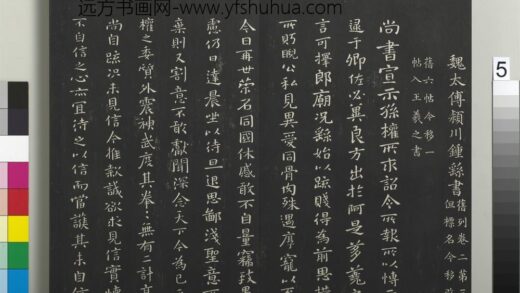 远方书画网 www.yfshuhua.com
5
魏太傅潁川鍾繇書 舊列卷二第
但標名今移
舊六帖今移一
帖入王羲之書
尚書宣示孫權所求詔令所報所以博
逮于卿佐必冀良方出於阿是芻蕘
言可擇郎廟況繇始以疏賤得為前恩橫
所盱睨公私見異愛同骨肉殊遇厚寵以至
今日再世榮名同國休慼敢不自量竊致愚
慮仍日達晨坐以待旦退思鄙淺聖意所
棄則又割意不敢獻聞深念天下今為已平
權之委質外震神武度其拳拳無有二計高
尚自疏況未見信今推款誠欲求見信實懷
不自信之心亦宜待之以信而當護其未自信